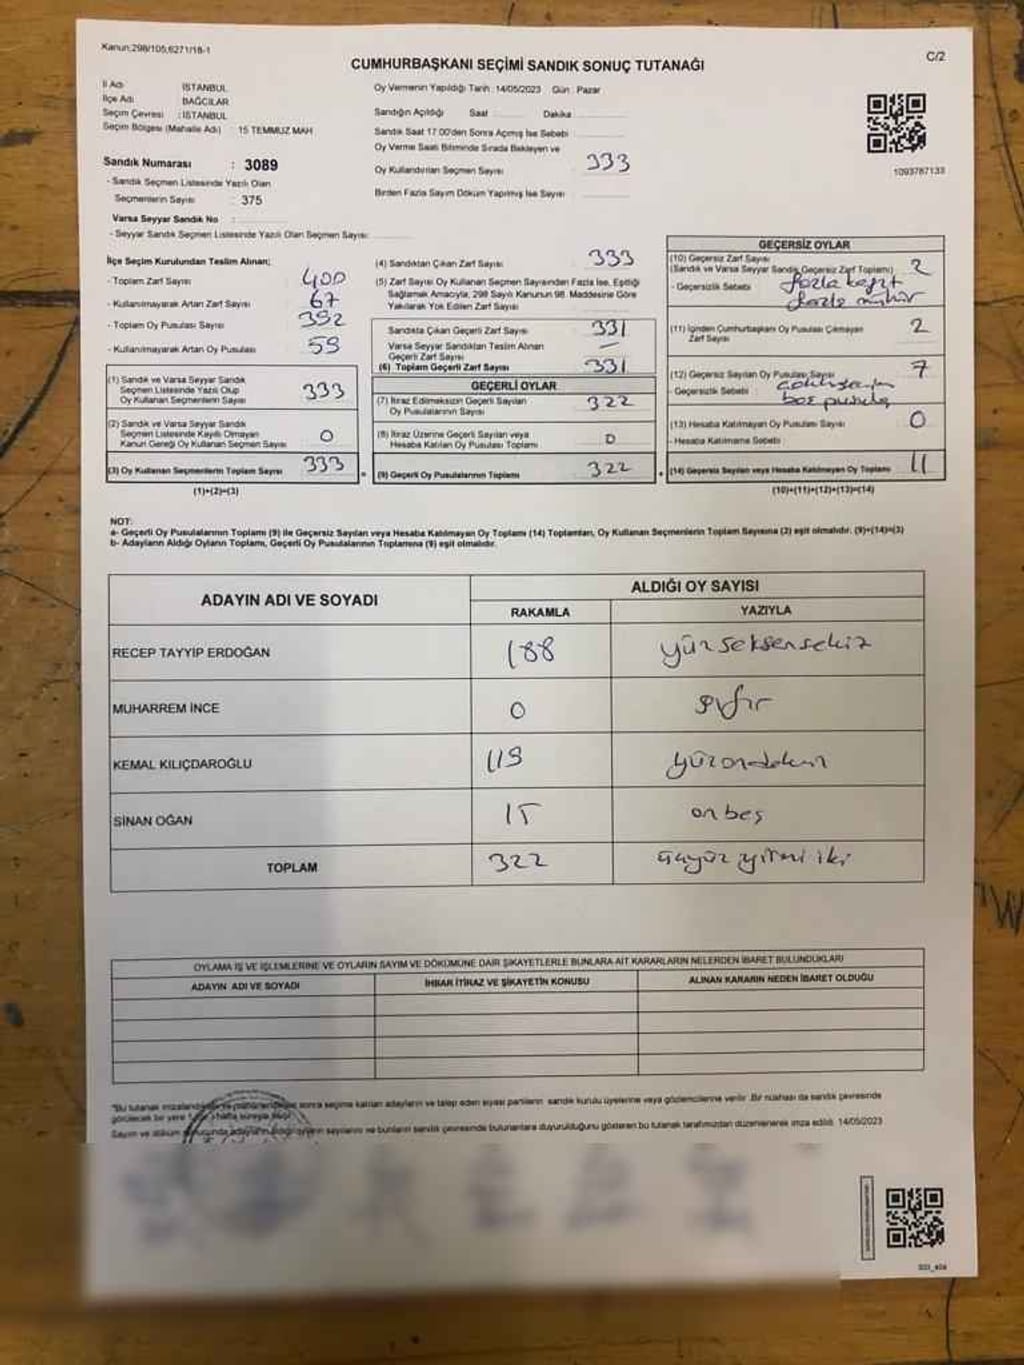 Kanun:298/105,6271/18-1
C/2
CUMHURBAŞKANI SEÇİMİ SANDIK SONUÇ TUTANAĞI
İl Adı İSTANBUL
İlçe Adı BAĞCILAR
Seçim Çevresi : İSTANBUL
Seçim Bölgesi (Mahalle Adı) : 15 TEMMUZ MAH
Sandık Numarası : 3089
- Sandık Seçmen Listesinde Yazılı Olan
Seçmenlerin Sayısı : 375
Varsa Seyyar Sandık No :
- Seyyar Sandık Seçmen Listesinde Yazılı Olan Seçmen Sayısı:
Oy Vermenin Yapıldığı Tarih : 14/05/2023 Gün : Pazar
Sandığın Açıldığı Saat Dakika
Sandık Saat 17.00'den Sonra Açılmış İse Sebebi
Oy Verme Saati Bitiminde Sırada Bekleyen ve
Oy Kullandırılan Seçmen Sayısı 333
Birden Fazla Sayım Döküm Yapılmış İse Sayısı
1093787133
İlçe Seçim Kurulundan Teslim Alınan;
- Toplam Zarf Sayısı 400
- Kullanılmayarak Artan Zarf Sayısı 67
- Toplam Oy Pusulası Sayısı 392
- Kullanılmayarak Artan Oy Pusulası 59
(1) Sandık ve Varsa Seyyar Sandık
Seçmen Listesinde Yazılı Olup
Oy Kullanan Seçmenlerin Sayısı 333
(2) Sandık ve Varsa Seyyar Sandık
Seçmen Listesinde Kayıtlı Olmayan
Kanun Gereği Oy Kullanan Seçmen Sayısı 0
(3) Oy Kullanan Seçmenlerin Toplam Sayısı 333
(1)+(2)=(3)
(4) Sandıktan Çıkan Zarf Sayısı 333
(5) Zarf Sayısı Oy Kullanan Seçmen Sayısından Fazla İse, Eşitliği
Sağlamak Amacıyla, 298 Sayılı Kanunun 98. Maddesine Göre
Yakılarak Yok Edilen Zarf Sayısı
Sandıkta Çıkan Geçerli Zarf Sayısı 331
Varsa Seyyar Sandıktan Teslim Alınan
Geçerli Zarf Sayısı —
(6) Toplam Geçerli Zarf Sayısı 331
GEÇERLİ OYLAR
(7) İtiraz Edilmeksizin Geçerli Sayılan
Oy Pusulalarının Sayısı 322
(8) İtiraz Üzerine Geçerli Sayılan veya
Hesaba Katılan Oy Pusulası Toplamı 0
(9) Geçerli Oy Pusulalarının Toplamı 322
GEÇERSİZ OYLAR
(10) Geçersiz Zarf Sayısı
(Sandık ve Varsa Seyyar Sandık Geçersiz Zarf Toplamı) 2
- Geçersizlik Sebebi fazla kağıt
fazla mühür
(11) İçinden Cumhurbaşkanı Oy Pusulası Çıkmayan
Zarf Sayısı 2
(12) Geçersiz Sayılan Oy Pusulası Sayısı 7
- Geçersizlik Sebebi
boş pusula
(13) Hesaba Katılmayan Oy Pusulası Sayısı 0
- Hesaba Katılmama Sebebi
(14) Geçersiz Sayılan veya Hesaba Katılmayan Oy Toplamı 11
(10)+(11)+(12)+(13)=(14)
NOT:
a- Geçerli Oy Pusulalarının Toplamı (9) ile Geçersiz Sayılan veya Hesaba Katılmayan Oy Toplamı (14) Toplamları, Oy Kullanan Seçmenlerin Toplam Sayısına (3) eşit olmalıdır. (9)+(14)=(3)
b- Adayların Aldığı Oyların Toplamı, Geçerli Oy Pusulalarının Toplamına (9) eşit olmalıdır.
ADAYIN ADI VE SOYADI
ALDIĞI OY SAYISI
RAKAMLA YAZIYLA
RECEP TAYYİP ERDOĞAN 188 yüzseksensekiz
MUHARREM İNCE 0 sıfır
KEMAL KILIÇDAROĞLU 119 yüzondokuz
SİNAN OĞAN 15 onbeş
TOPLAM 322 üçyüz yirmi iki
OYLAMA İŞ VE İŞLEMLERİNE VE OYLARIN SAYIM VE DÖKÜMÜNE DAİR ŞİKAYETLERLE BUNLARA AİT KARARLARIN NELERDEN İBARET BULUNDUKLARI
ADAYIN ADI VE SOYADI İHBAR İTİRAZ VE ŞİKAYETİN KONUSU ALINAN KARARIN NEDEN İBARET OLDUĞU
"Bu tutanak sonra seçime katılan adayların ve talep eden siyasi partilerin sandık kurulu üyelerine veya gözlemcilerine verilir. Bir nüshası da sandık çevresinde
görülecek bir yere 1 hafta süreyle
Sayım ve döküm sonucunda adayların aldığı oyların sayılarını ve bunların sandık çevresinde bulunanlara duyurulduğunu gösteren bu tutanak tarafımızdan düzenlenerek imza edildi. 14/05/2023